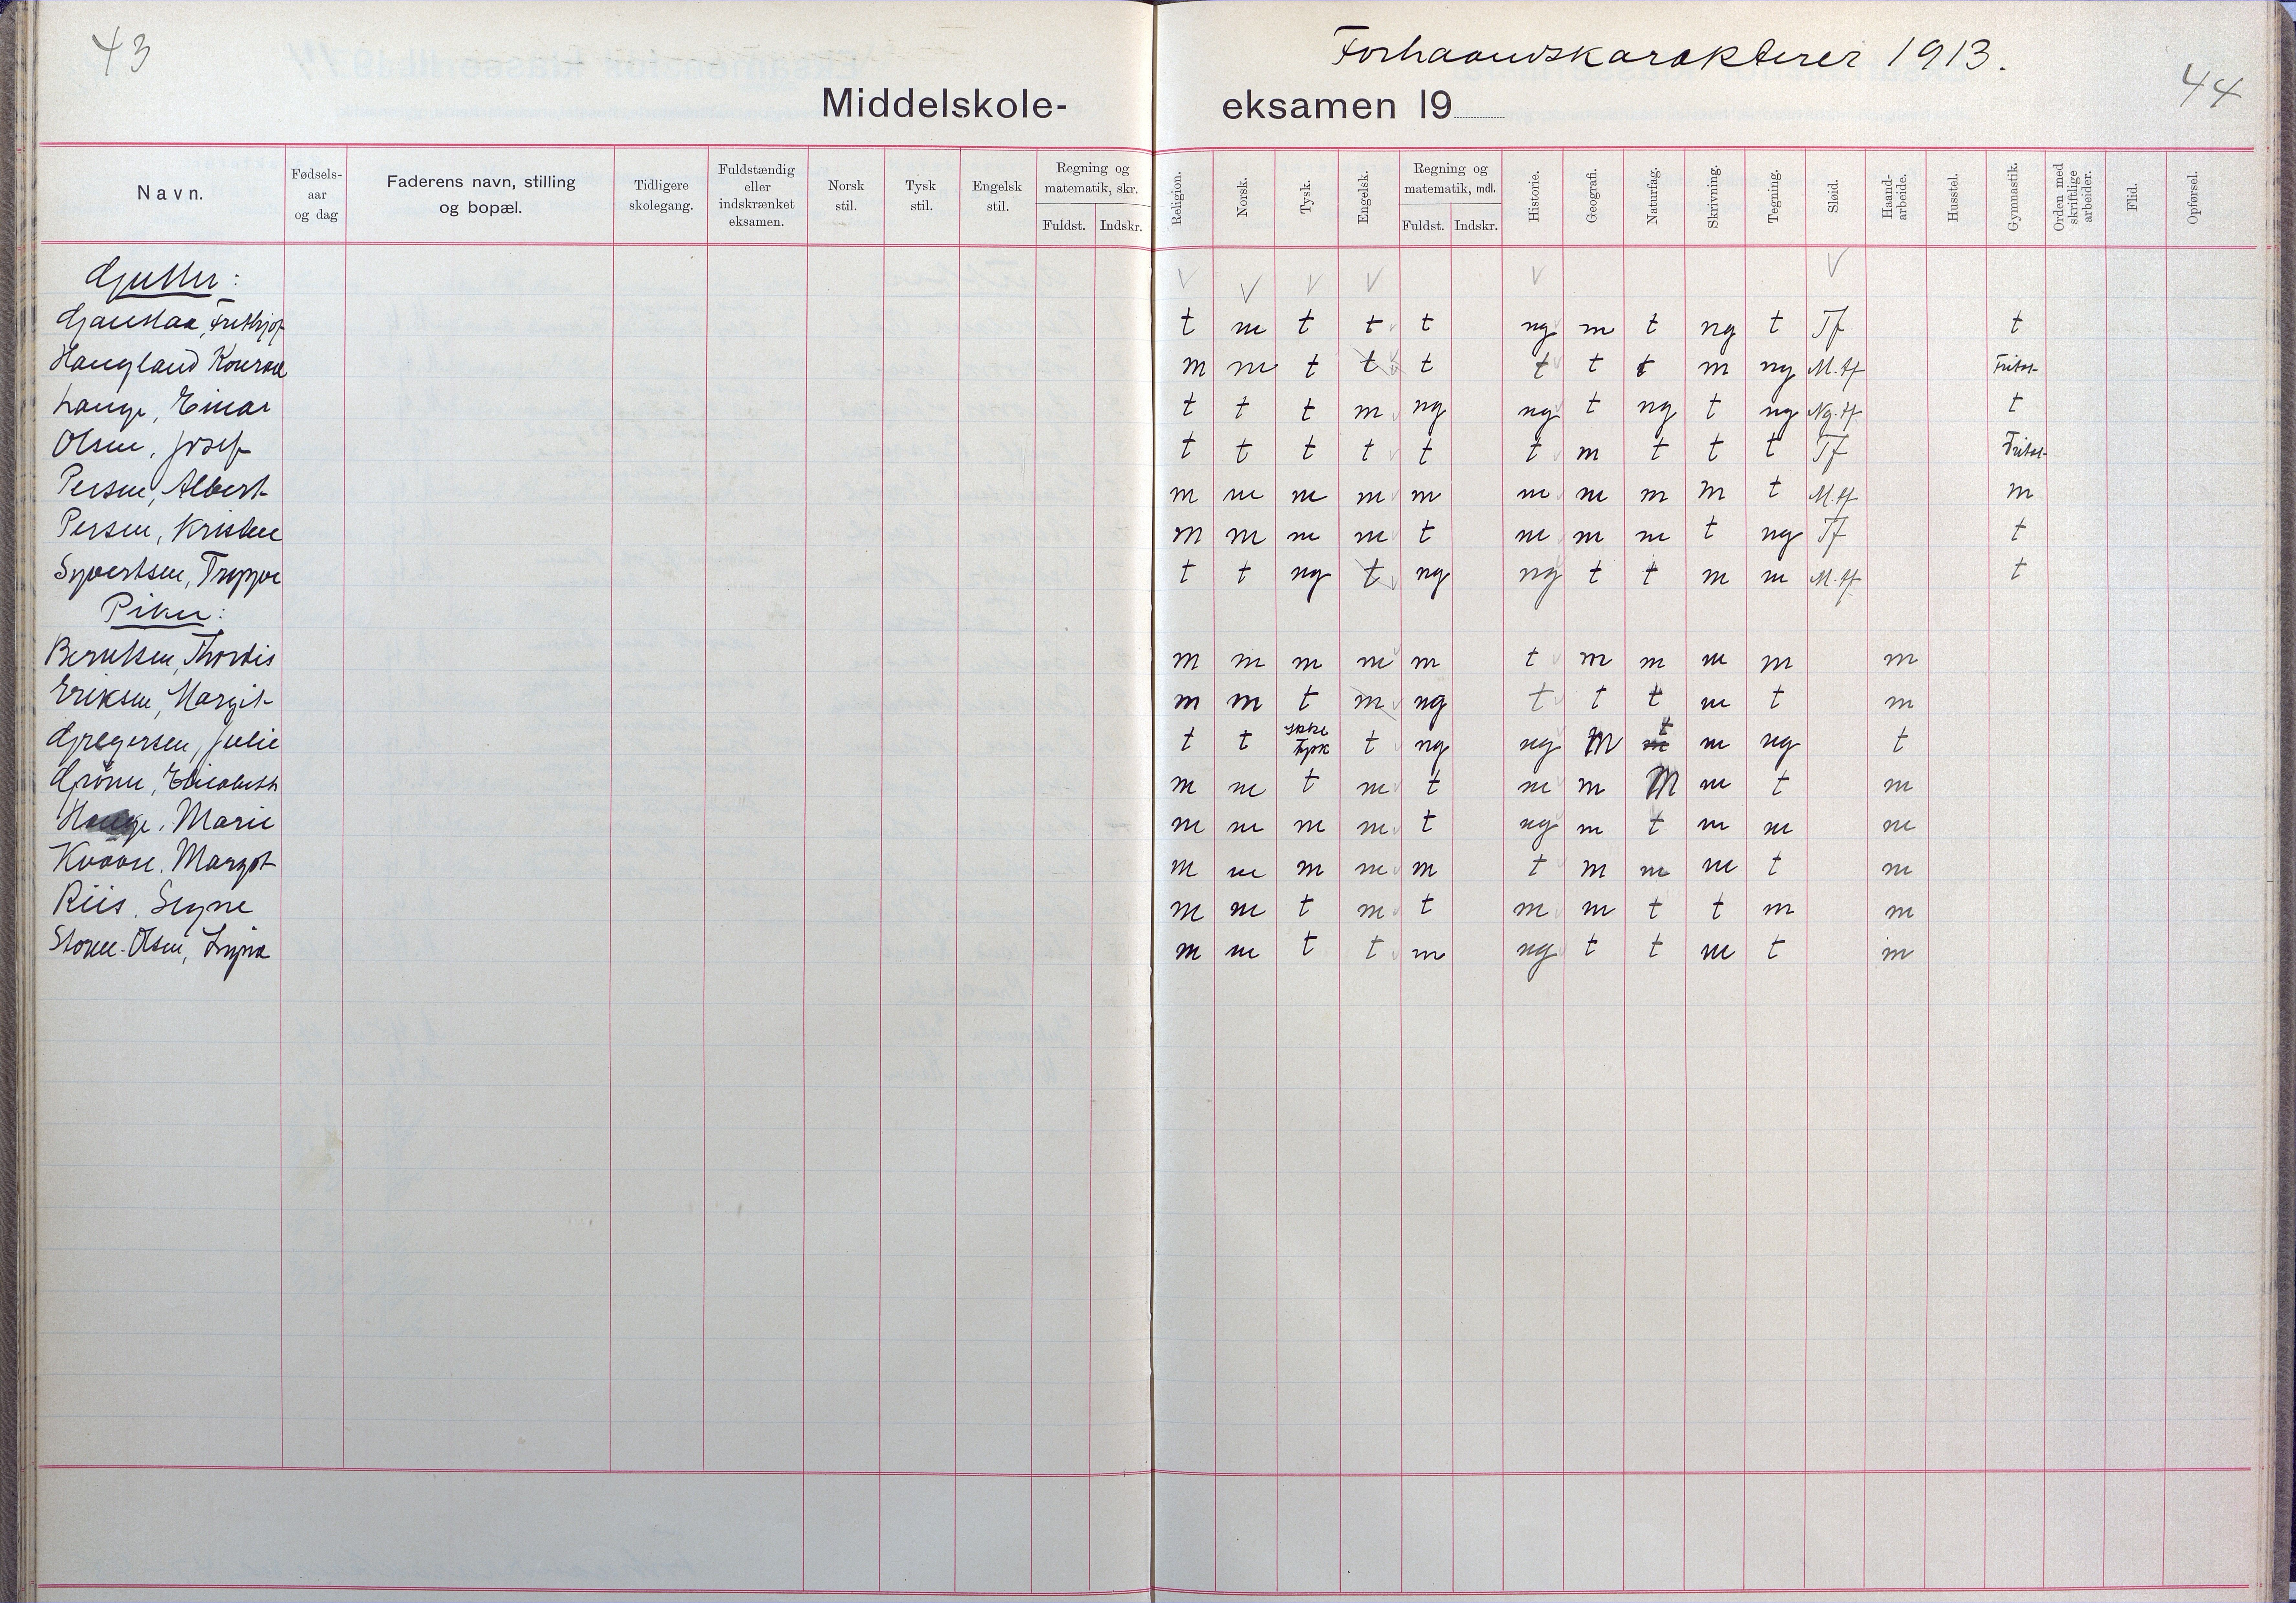 43
Forhaandskarakterer 1913.
44
Middelskole-eksamen 19
Navn. Fødsels-aar og dag Faderens navn, stilling og bopæl. Tidligere skolegang. Fuldstændig eller indskrænket eksamen. Norsk stil. Tysk stil. Engelsk stil. Regning og matematik, skr. Fuldst. Indskr. Religion. Norsk. Tysk. Engelsk. Regning og matematik, mdl. Fuldst. Indskr. Historie. Geografi. Naturfag. Skrivning. Tegning. Sløid. Haand-arbeide. Husstel. Gymnastik. Orden med skriftlige arbeider. Flid. Opførsel.
Gutter: V V V V V V
Gjaustaa, Frithjof t m t t t ng m t ng t Tf t
Haugland Konrad m m t t t t t t m ng M.tf Fritat
Lange, Einar t t t m ng ng t ng t ng Ng.tf t
Olsen, Josef t t t t t t m t t t Tf Fritat
Persen, Albert m m m m m m m m m t M.tf m
Persen, Kristen m m m m t m m m t ng Tf t
Syvertsen, Trygve t t ng t ng ng t t m m M.tf t
Piker:
Berntsen, Thordis m m m m m t m m m m m
Eriksen, Margit m m t m ng t t t m t m
Gregersen, Julie t t ikke tysk t ng ng M m t m ng t
Grönn, Elisabeth m m t m t m m M m t m
Hauge, Marie m m m m t ng m t m m m
Kvaare, Margot m m m m m t m m m t m
Riis, Signe m m t m t m m t t m m
Olsen, m m t t m ng t t m t m